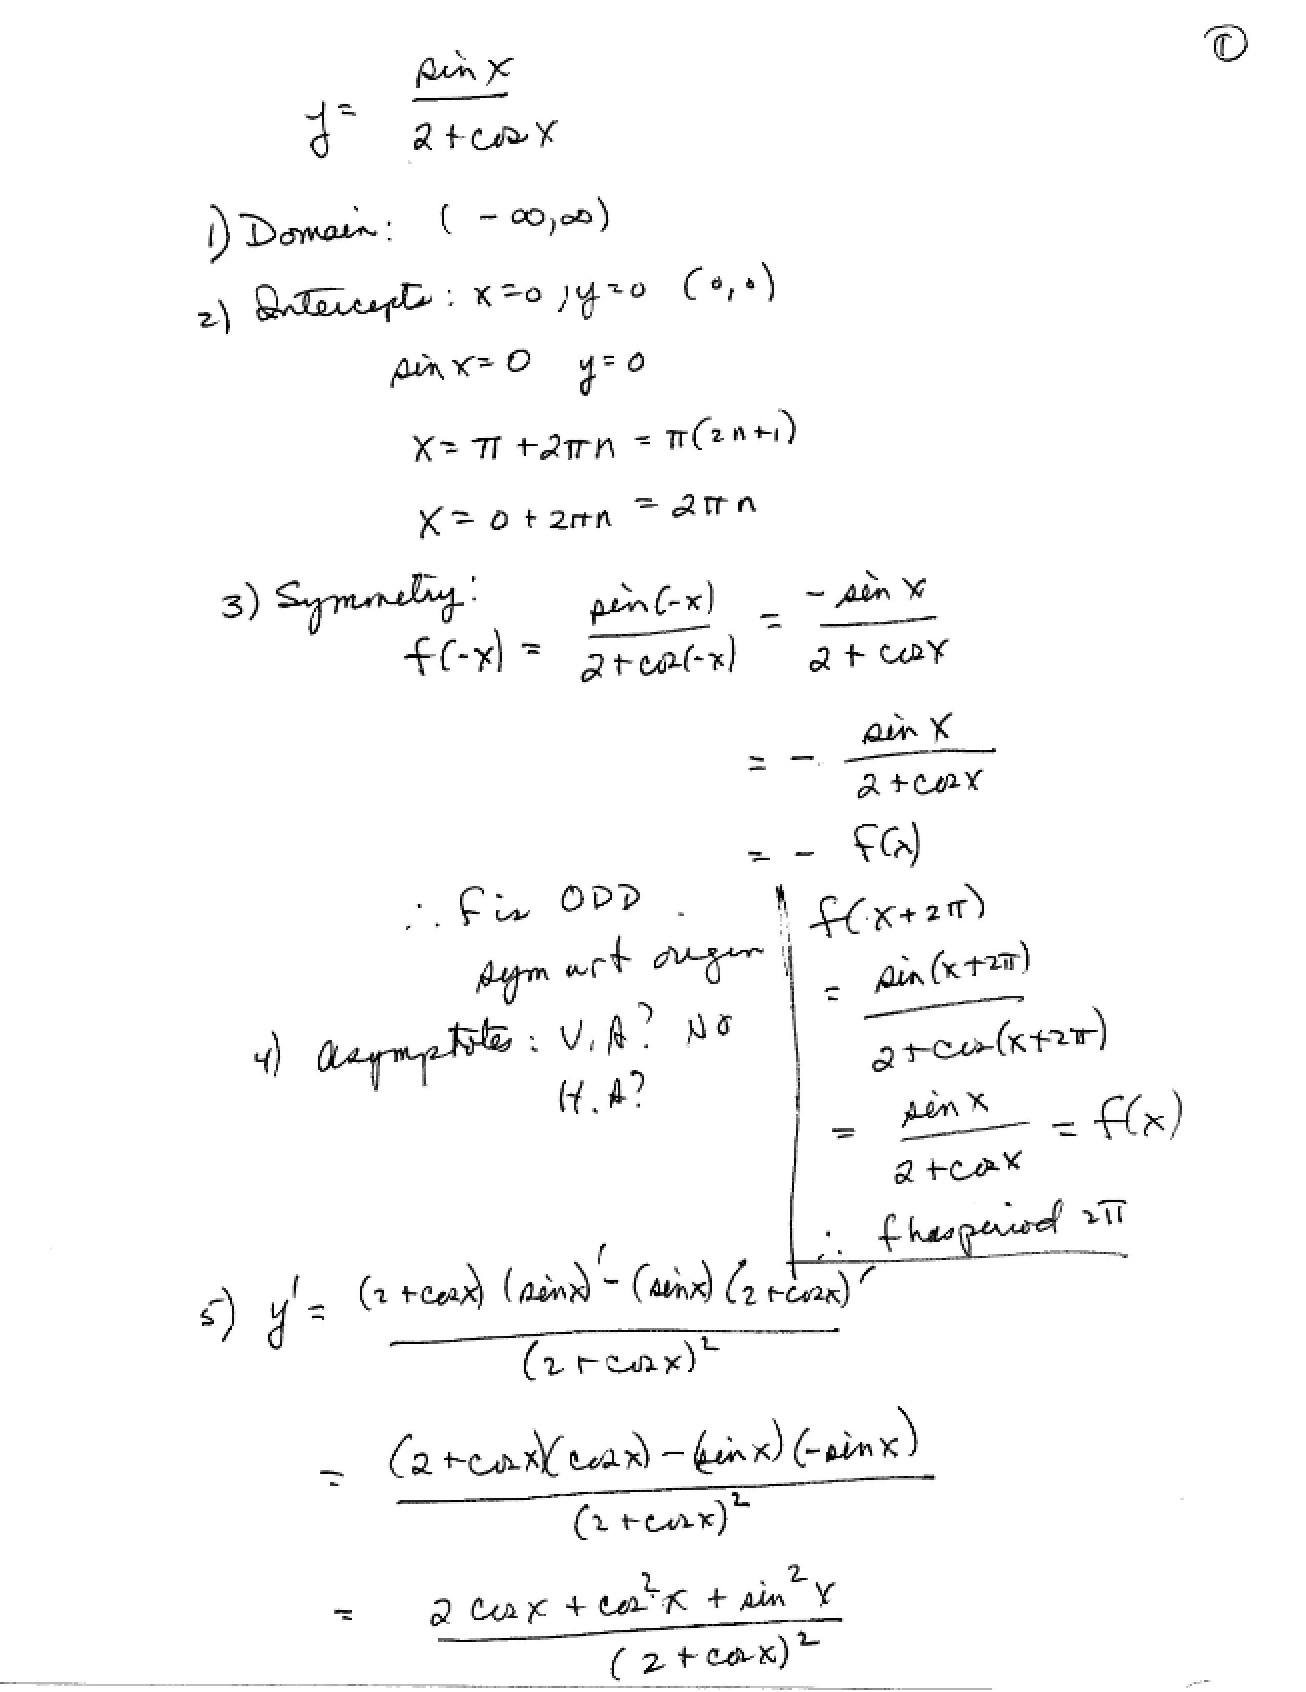 ①
y = sin x / (2 + cos x)
1) Domain: (-∞,∞)
2) Intercepts: x=0, y=0 (0,0)
sin x = 0 y = 0
x = π + 2πn = π(2n+1)
x = 0 + 2πn = 2πn
3) Symmetry:
f(-x) = sin(-x) / (2+cos(-x)) = -sin x / (2 + cos x)
= - sin x / (2 + cos x)
= - f(x)
∴ f is ODD.
sym wrt origin
4) Asymptotes: V.A? No
H.A?
f(x+2π)
= sin(x+2π) / (2+cos(x+2π))
= sin x / (2+cos x) = f(x)
∴ f has period 2π
5) y' = ((2+cos x)(sin x)' - (sin x)(2+cos x)') / (2+cos x)²
= ((2+cos x)(cos x) - (sin x)(-sin x)) / (2+cos x)²
= (2 cos x + cos² x + sin² x) / (2+cos x)²